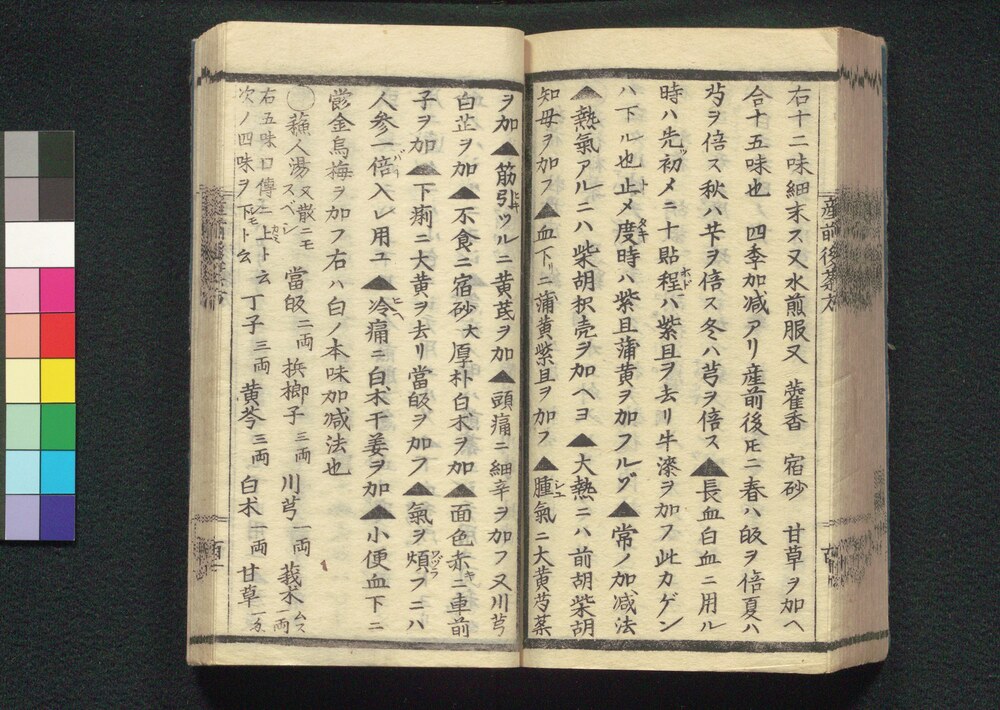 右十二味細末ス又水煎服又　藿香　宿砂　甘草ヲ加ヘ
合十五味也　四季加减アリ産前後𪜈ニ春ハ皈ヲ倍夏ハ
芍ヲ倍ス秋ハ芐ヲ倍ス冬ハ芎ヲ倍ス▲長血白血ニ用ル
時ハ先初メニ十貼程ハ紫且ヲ去リ牛漆ヲ加フ此カゲン
ハ下ル也止メ度時ハ紫且蒲黄ヲ加フルゾ▲常ノ加减法
▲熱氣アルニハ柴胡枳壳ヲ加ヘヨ▲大熱ニハ前胡柴胡
知母ヲ加フ▲血下リニ蒲黄紫且ヲ加フ▲腫氣ニ大黄芍薬
ヲ加▲筋引ツルニ黄茋ヲ加▲頭痛ニ細辛ヲ加フ又川芎
白芷ヲ加▲不食ニ宿砂大厚朴白朮ヲ加▲面色赤キニ車前
子ヲ加▲下痢ニ大黄ヲ去リ當皈ヲ加フ▲氣ヲ煩フニハ
人参一倍入レ用ユ▲冷痛ニ白朮干姜ヲ加▲小便血下ニ
欝金烏梅ヲ加フ右ハ白ノ本味加减法也
○蘓人湯又散ニモスベシ　當皈二両　梹榔子三両　川芎一両　莪朮ムス一両
右五味口傳ニ上ト云
次ノ四味ヲ下モト云　丁子三両　黄芩三両　白朮一両　甘草